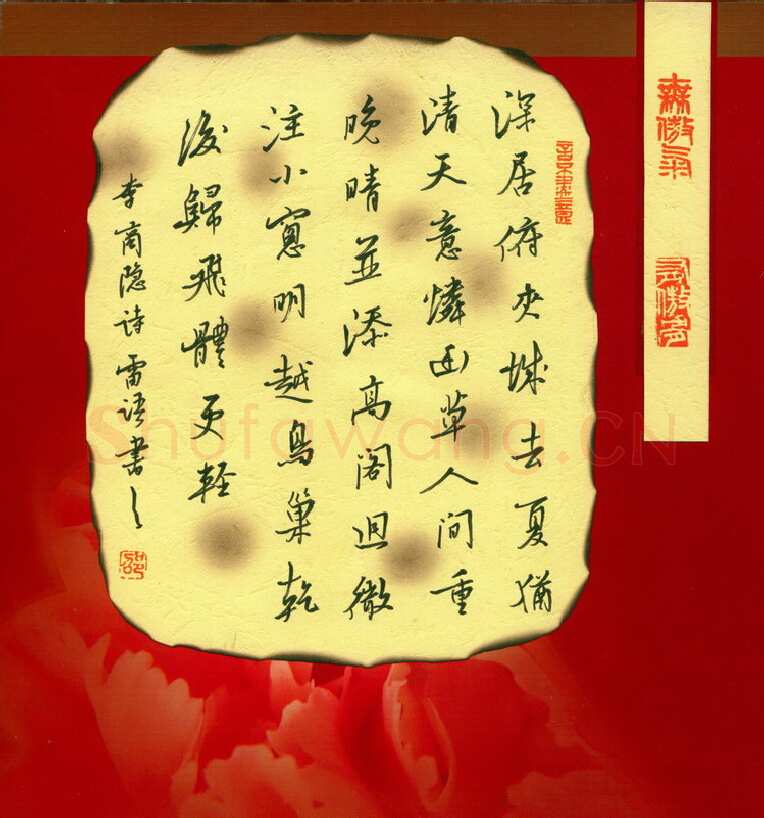 深居俯夾城去夏猶
清天意憐幽草人间重
晚晴並添高阁迥微
注小窻明越鳥巢乾
後歸飛體更輕
李商隐诗雷语書之
Shufawang.CN